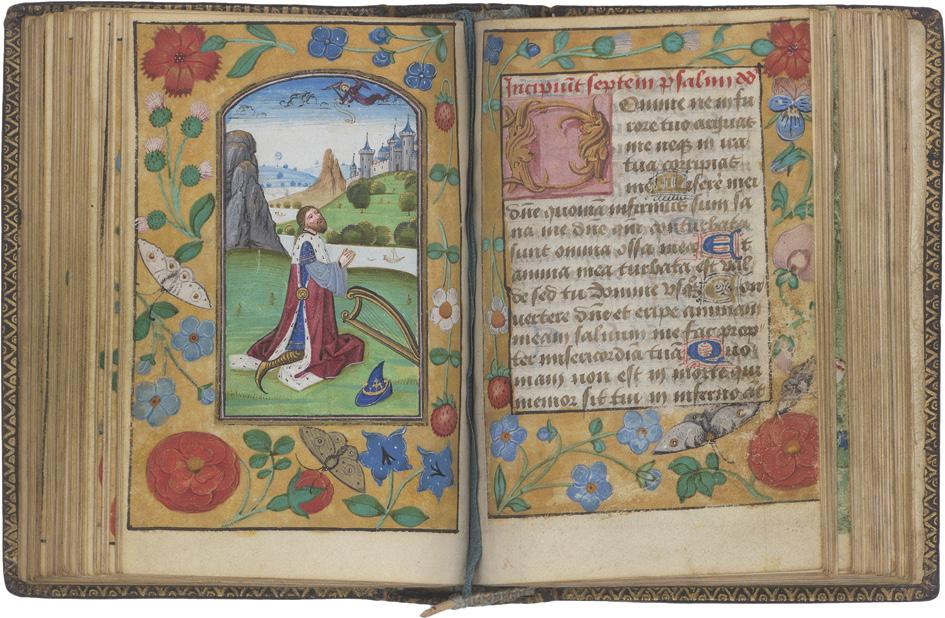 Incipiūt septem psalmi dd
Domine ne in fu
rore tuo arguas
me neqз in ira
tua corripias
me Miserē mei
dñe quoniā infirmus sum sa
na me dñe qm̄ conturbata
sunt omnia ossa mea Et
anima mea turbata est val
de sed tu domine vsqз Con
vertere dñe et eripe animam
meam saluum me fac prop
ter misericordiā tuā Quo
niam non est in morte qui
memor sit tui in inferno aūt